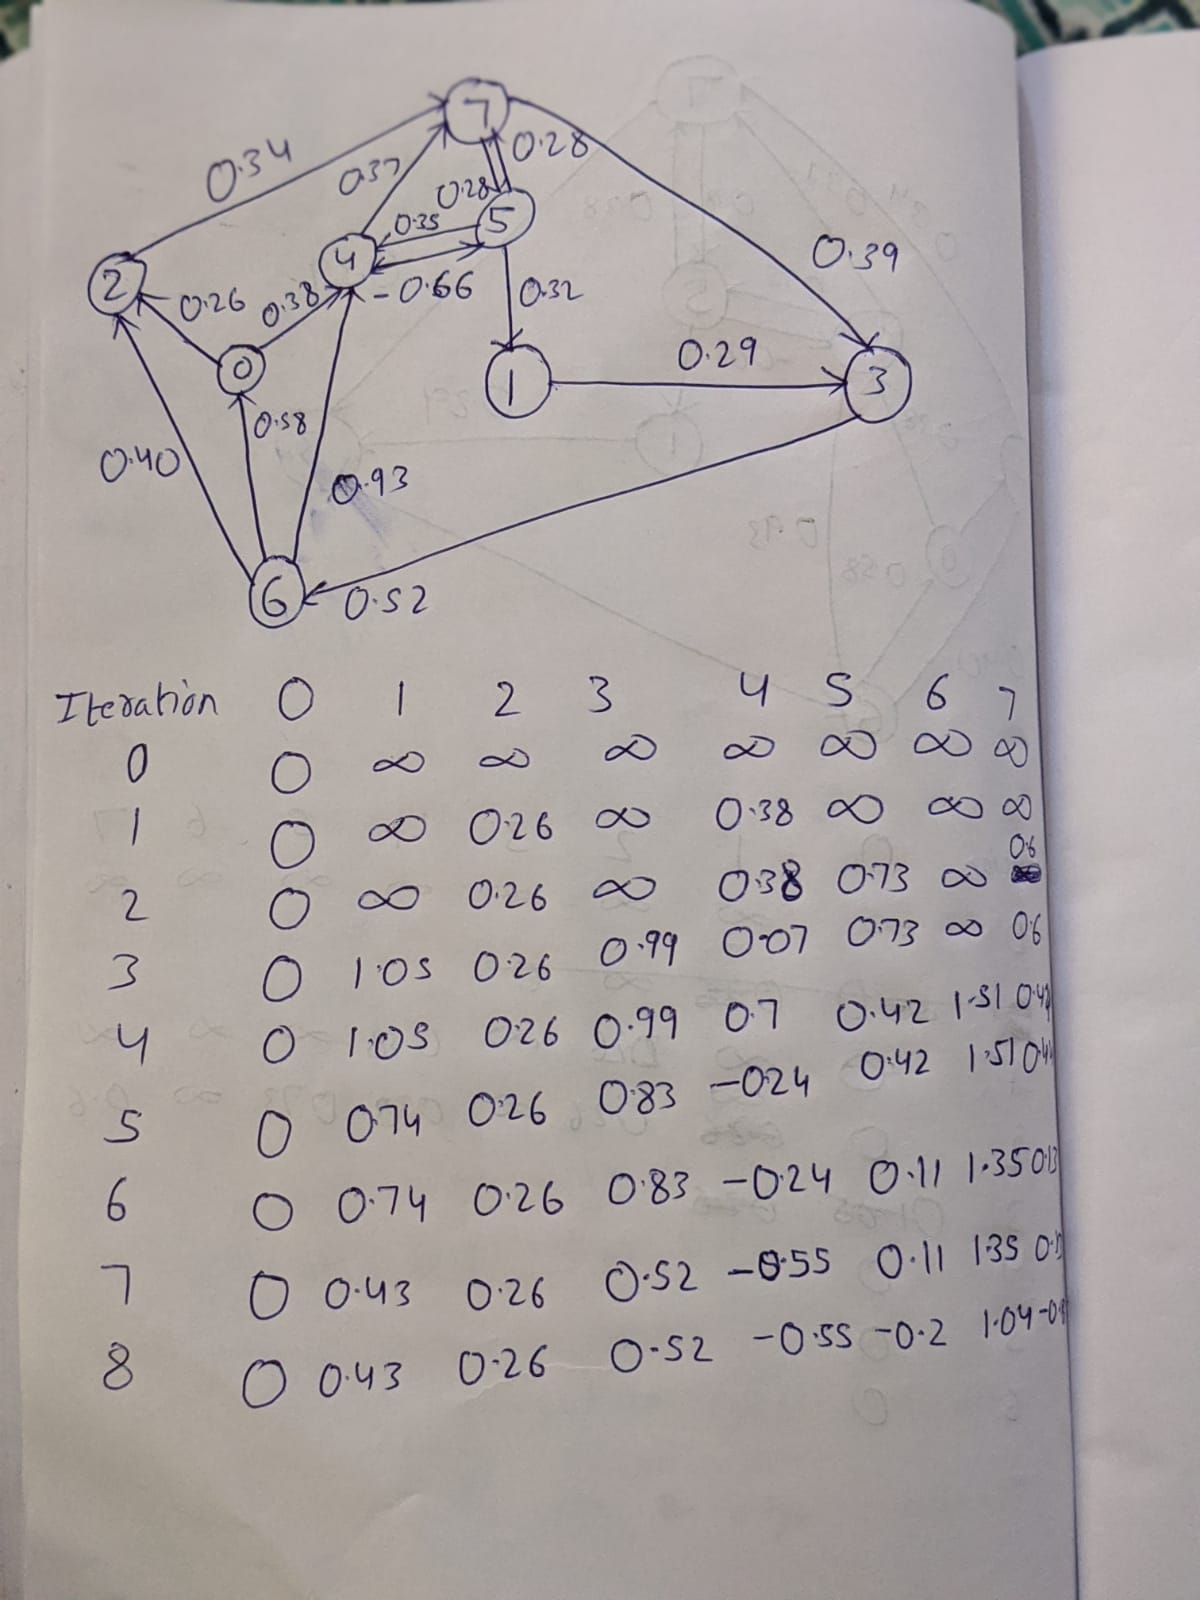 7
0.34
0.37
0.28
0.28
5
0.35
4
-0.66
0.39
2
0.26
0.38
0.32
0
1
0.29
3
0.58
0.40
0.93
6
0.52
Iteration 0 1 2 3 4 5 6 7
0 0 ∞ ∞ ∞ ∞ ∞ ∞ ∞
1 0 ∞ 0.26 ∞ 0.38 ∞ ∞ ∞
2 0 ∞ 0.26 ∞ 0.38 0.73 ∞ 0.6
3 0 1.05 0.26 0.99 0.07 0.73 ∞ 0.6
4 0 1.05 0.26 0.99 0.7 0.42 1.51
5 0 0.74 0.26 0.83 -0.24 0.42 1.51
6 0 0.74 0.26 0.83 -0.24 0.11 1.35
7 0 0.43 0.26 0.52 -0.55 0.11 1.35
8 0 0.43 0.26 0.52 -0.55 -0.2 1.04